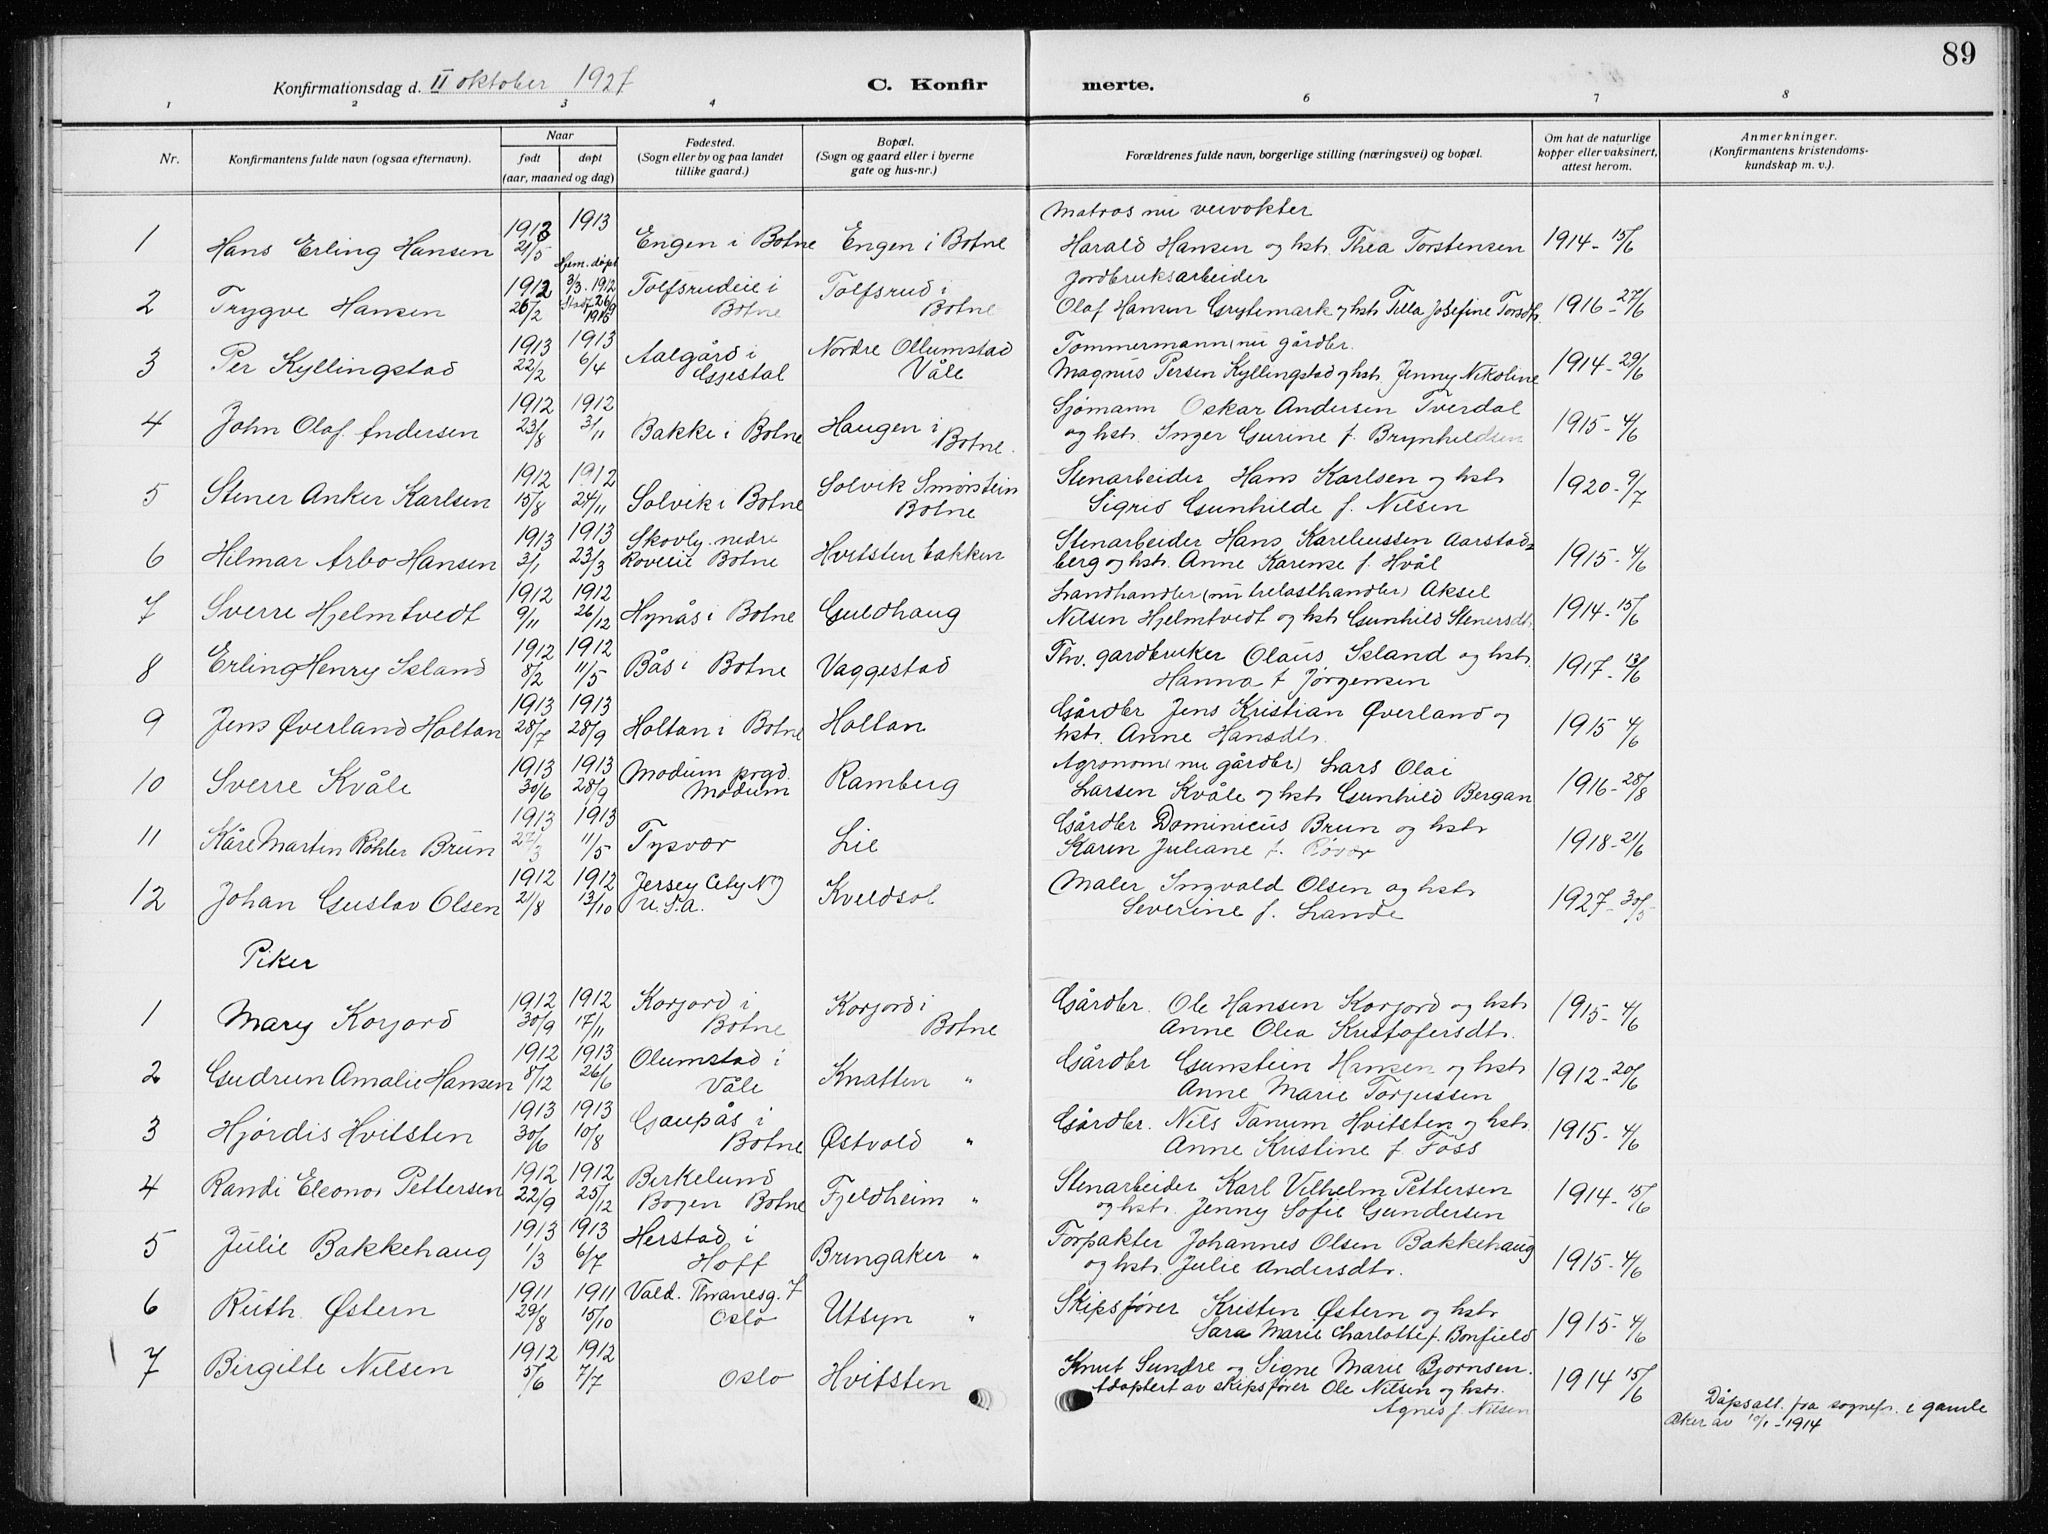 89
Konfirmationsdag d. 11 oktober 1927 C. Konfir merte.
1 2 3 4 5 6 7 8
Nr. Konfirmantens fulde navn (ogsaa efternavn). Naar født døpt (aar, maaned og dag) Fødested. (Sogn eller by og paa landet tillike gaard.) Bopæl. (Sogn og gaard eller i byerne gate og hus-nr.) Forældrenes fulde navn, borgerlige stilling (næringsvei) og bopæl. Om hat de naturlige kopper eller vaksinert, attest herom. Anmerkninger. (Konfirmantens kristendomskundskap m. v.).
Matros nu
1 Hans Erling Hansen 21/5 1913 Engen i Botne Engen i Botne Harald Hansen og hstr. Thea Torstensen 1914-15/6
Jordbruksarbeider
2 Trygve Hansen 1912 26/2 Hjem. døpt 3/3-1912 Stadf. 26/9 Tolfsrudeie i Botne Tolfsrud i Botne Olaf Hansen Grytemark og hstr. Tilla Josefine Torsdtr. 1916-27/6
Tømmermann (nu gårdbr.
3 Per Kyllingstad 1913 22/2 1913 6/4 Aalgård i Gjestal Nordre Ollumstad Våle Magnus Persen Kyllingstad og hstr. Jenny Nikoline 1914-29/6
4 John Olaf Andersen 1912 23/8 1912 3/11 Bakke i Botne Haugen i Botne. Sjømann Oskar Andersen Tverdal
og hstr. Inger Gurine f. Brynhildsen 1915-4/6
5 Stener Anker Karlsen 1912 15/8 1912 24/11 Solvik i Botne Solvik Smørstein Botne Stenarbeider Hans Karlsen og hstr.
Sigrid Gunhilde f. Nilsen 1920-9/7
6 Hilmar Arbo Hansen 1913 3/1 1913 23/3 Skovly nedre Roveie Botne Hvitstenbakken Stenarbeider Hans Kareliussen Aarstad-
berg og hstr. Anne Karense f. Hvål 1915-4/6
7 Sverre Hjelmtvedt 1912 9/11 1912 26/12 Hynås i Botne Guldhaug Landhandler (nu trelasthandler) Aksel
Nilsen Hjelmtvedt og hstr. Gunhild Stenersdtr. 1914-15/6
8 Erling Henry Island 1912 8/2 1912 11/5 Bås i Botne Vaggestad Fhv. gardbruker Olaus Island og hstr.
Hanna f Jørgensen 1917-13/6
9 Jens Øverland Holtan 1913 28/7 1913 28/9 Holtan i Botne Holtan Gårdbr Jens Kristian Øverland og
hstr. Anne Hansdtr. 1915 4/6
10 Sverre Kvåle 1913 30/6 1913 28/9 Modum prgd. Modum Ramberg Agronom (nu gårdbr) Lars Olai
Larsen Kvåle og hstr Gunhild Bergan 1916-28/8
11 Kåre Marten Røhler Brun 1913 27/3 1913 11/5 Tysvær Lie Gårdbr Dominicus Brun og hstr.
Karen Juliane f. Røvær 1918-21/6
12 Johan Gustav Olsen 1912 21/8 1912 13/10 Jersey City NJ U.S.A. Kveldsol Maler Ingvald Olsen og hstr.
Severine f. Lande 1927-30/5
Piker
1 Mary Korjord 1912 30/9 1912 17/11 Korjord i Botne Korjord i Botne Gårdbr. Ole Hansen Korjord og hstr.
Anne Olea Kristofersdtr. 1915-4/6
2 Gudrun Amalie Hansen 1912 8/12 1913 26/6 Olumstad i Våle Knatten " Gårdbr Gunstein Hansen og hstr.
Anne Marie Torjussen 1912-20/6
3 Hjørdis Hvitsten 1913 30/6 1913 10/8 Gaupås i Botne Østvold " Gårdbr. Nils Tanum Hvitsten og hstr.
Anne Kristine f. Foss 1915-4/6
4 Randi Eleonor Pettersen 1912 22/9 1912 25/12 Birkelund Bogen Botne Fjeldheim " Stenarbeider Karl Vilhelm Pettersen
og hstr. Jenny Sofie Gundersen 1914-15/6
5 Julie Bakkehaug 1913 1/3 1913 6/7 Herstad i Hoff Bringaker " Forpakter Johannes Olsen Bakkehaug
og hstr. Julie Andersdtr. 1915-4/6
6 Ruth Østern 1911 29/8 1911 15/10 Vald. Thranesg. 7 Oslo Utsyn " Skipsfører Kristen Østern og hstr.
Sara Marie Charlotte f. Bonfield 1915-4/6
7 Birgitte Nilsen 1912 5/6 1912 7/7 Oslo Hvitsten Knut Sundre og Signe Marie Bjørnsen. 1914 15/6
Adoptert av skipsfører Ole Nilsen og hstr.
Agnes f. Nilsen
Dåpsatt. fra sognepr. i gamle
Aker av 10/1-1914